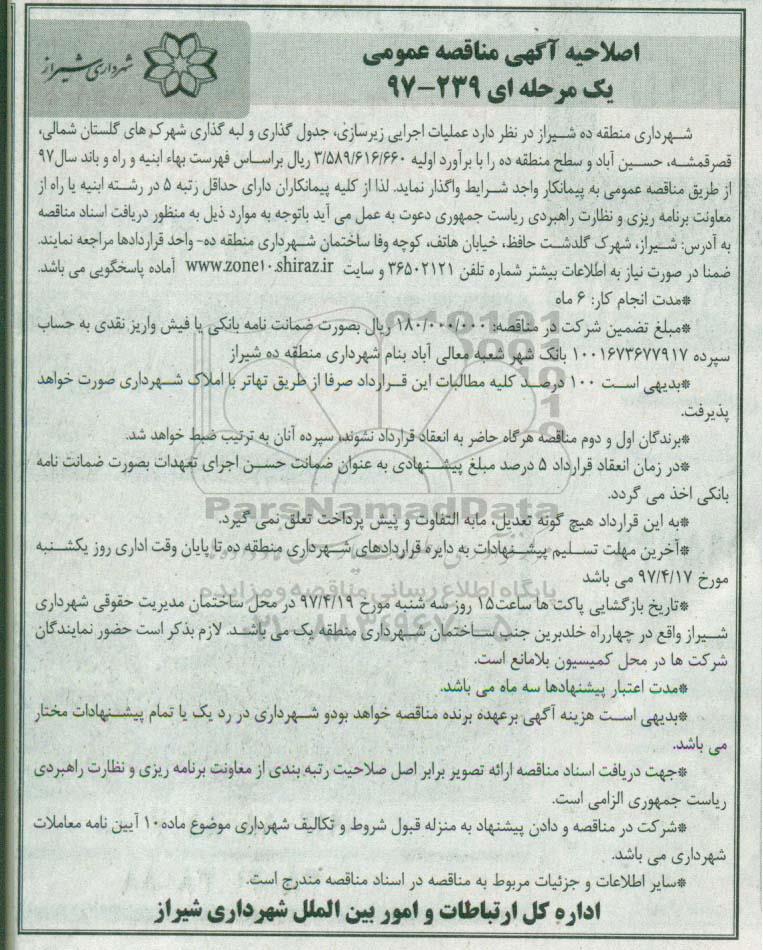 اصلاحیه آگهی مناقصه عمومی
یک مرحله ای ۲۳۹-۹۷
شهرداری شیراز
شهرداری منطقه ده شیراز در نظر دارد عملیات اجرایی زیرسازی، جدول گذاری و لبه گذاری شهرک های گلستان شمالی،
قصرقمشه، حسین آباد و سطح منطقه ده را با برآورد اولیه ۳/۵۸۹/۶۱۶/۶۶۰ ریال براساس فهرست بهاء ابنیه و راه و باند سال۹۷
از طریق مناقصه عمومی به پیمانکار واجد شرایط واگذار نماید. لذا از کلیه پیمانکاران دارای حداقل رتبه ۵ در رشته ابنیه یا راه از
معاونت برنامه ریزی و نظارت راهبردی ریاست جمهوری دعوت به عمل می آید باتوجه به موارد ذیل به منظور دریافت اسناد مناقصه
به آدرس: شیراز، شهرک گلدشت حافظ، خیابان هاتف، کوچه وفا ساختمان شهرداری منطقه ده- واحد قراردادها مراجعه نمایند.
ضمنا در صورت نیاز به اطلاعات بیشتر شماره تلفن ۳۶۵۰۲۱۲۱ و سایت www.zone۱۰.shiraz.ir آماده پاسخگویی می باشد.
*مدت انجام کار: ۶ ماه
*مبلغ تضمین شرکت در مناقصه: ۱۸۰/۰۰۰/۰۰۰ ریال بصورت ضمانت نامه بانکی یا فیش واریز نقدی به حساب
سپرده ۱۰۰۱۶۷۳۶۷۷۹۱۷ بانک شهر شعبه معالی آباد بنام شهرداری منطقه ده شیراز
*بدیهی است ۱۰۰ درصد کلیه مطالبات این قرارداد صرفا از طریق تهاتر با املاک شهرداری صورت خواهد
پذیرفت.
*برندگان اول و دوم مناقصه هرگاه حاضر به انعقاد قرارداد نشوند، سپرده آنان به ترتیب ضبط خواهد شد.
*در زمان انعقاد قرارداد ۵ درصد مبلغ پیشنهادی به عنوان ضمانت حسن اجرای تعهدات بصورت ضمانت نامه
بانکی اخذ می گردد.
ParsNamadData
*به این قرارداد هیچ گونه تعدیل، مابه التفاوت و پیش پرداخت تعلق نمی گیرد.
*آخرین مهلت تسلیم پیشنهادات به دایره قراردادهای شهرداری منطقه ده تا پایان وقت اداری روز یکشنبه
مورخ ۹۷/۴/۱۷ می باشد
پایگاه اطلاع رسانی مناقصه و مزایده
*تاریخ بازگشایی پاکت ها ساعت۱۵ روز سه شنبه مورخ ۹۷/۴/۱۹ در محل ساختمان مدیریت حقوقی شهرداری
شیراز واقع در چهارراه خلدبرین جنب ساختمان شهرداری منطقه یک می باشد. لازم بذکر است حضور نمایندگان
شرکت ها در محل کمیسیون بلامانع است.
*مدت اعتبار پیشنهادها سه ماه می باشد.
*بدیهی است هزینه آگهی برعهده برنده مناقصه خواهد بودو شهرداری در رد یک یا تمام پیشنهادات مختار
می باشد.
*جهت دریافت اسناد مناقصه ارائه تصویر برابر اصل صلاحیت رتبه بندی از معاونت برنامه ریزی و نظارت راهبردی
ریاست جمهوری الزامی است.
*شرکت در مناقصه و دادن پیشنهاد به منزله قبول شروط و تکالیف شهرداری موضوع ماده۱۰ آیین نامه معاملات
شهرداری می باشد.
*سایر اطلاعات و جزئیات مربوط به مناقصه در اسناد مناقصه مندرج است.
اداره کل ارتباطات و امور بین الملل شهرداری شیراز